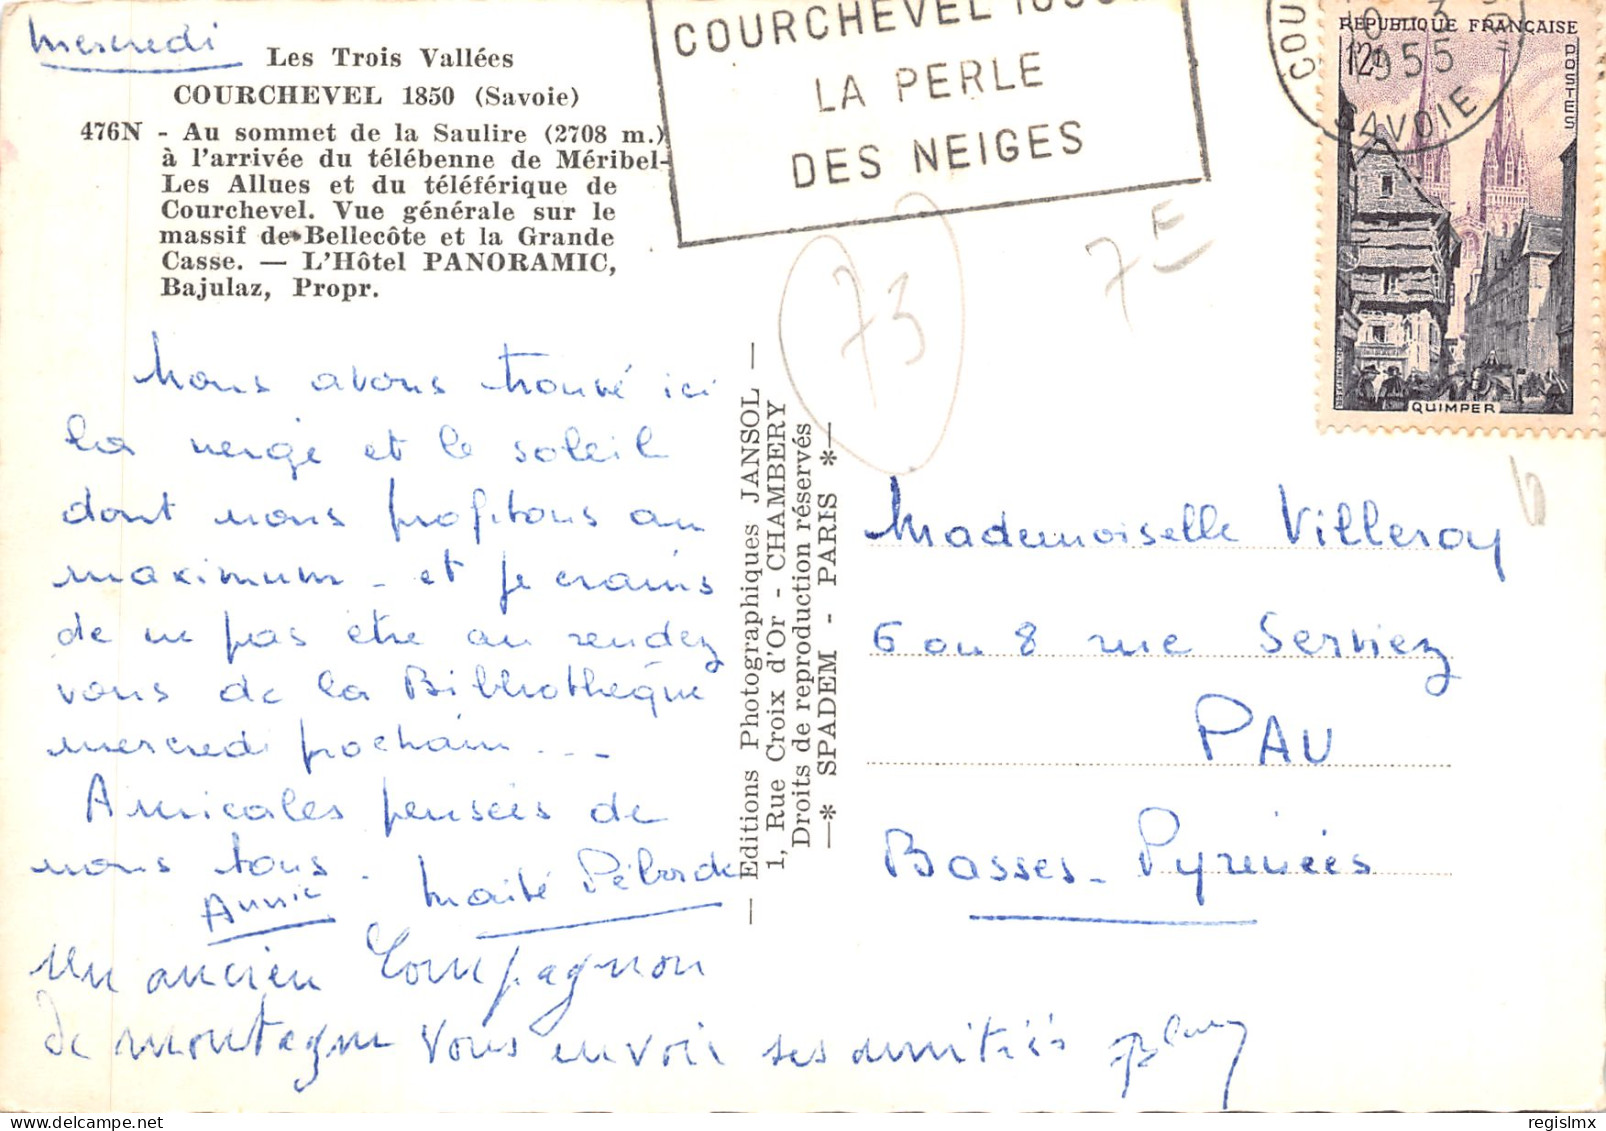 Mercredi
Les Trois Vallées
COURCHEVEL 1850 (Savoie)
476N - Au sommet de la Saulire (2708 m.)
à l'arrivée du télébenne de Méribel-
Les Allues et du téléférique de
Courchevel. Vue générale sur le
massif de Bellecôte et la Grande
Casse. — L'Hôtel PANORAMIC,
Bajulaz, Propr.
COURCHEVEL 1850
LA PERLE
DES NEIGES
1955
SAVOIE
REPUBLIQUE FRANÇAISE
12f
POSTES
QUIMPER
73
7E
Nous avons trouvé ici
la neige et le soleil
dont nous profitons au
maximum - et je crains
de ne pas être au rendez
vous de la Bibliothèque
mercredi prochain...
Amicales pensées de
nous tous.
Annie
Maïté Péborde
Un ancien Compagnon
de montagne vous envoie ses amitiés
— Editions Photographiques JANSOL —
1, Rue Croix d'Or - CHAMBERY
Droits de reproduction réservés
—* SPADEM - PARIS *—
Mademoiselle Villeroy
6 ou 8 rue Serviez
PAU
Basses-Pyrénées
© regislmx